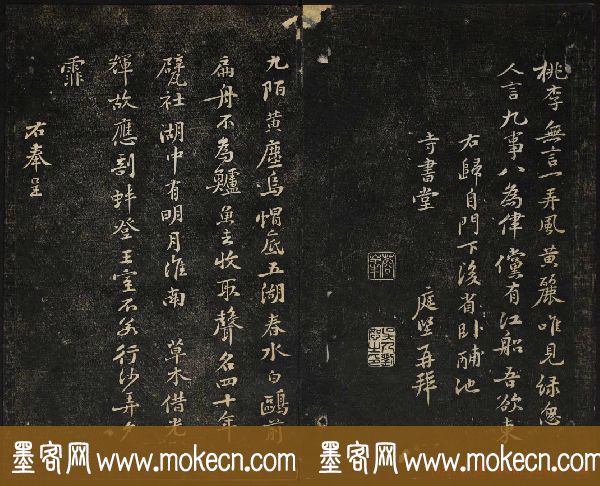 桃李無言一再風黃麗唯見緑怱
人言九事八為律儻有江船吾欲東
右歸自門下後省卧酺池
寺書堂
庭堅再拜
九陌黃塵烏帽底五湖春水白鷗前
扁舟不為鱸魚去收取聲名四十年
甓社湖中有明月淮南草木借光
輝故應剖蚌登王室不若行沙弄夕
霏
右奉呈
墨客网 www.mokecn.com 墨客网 www.mokecn.com